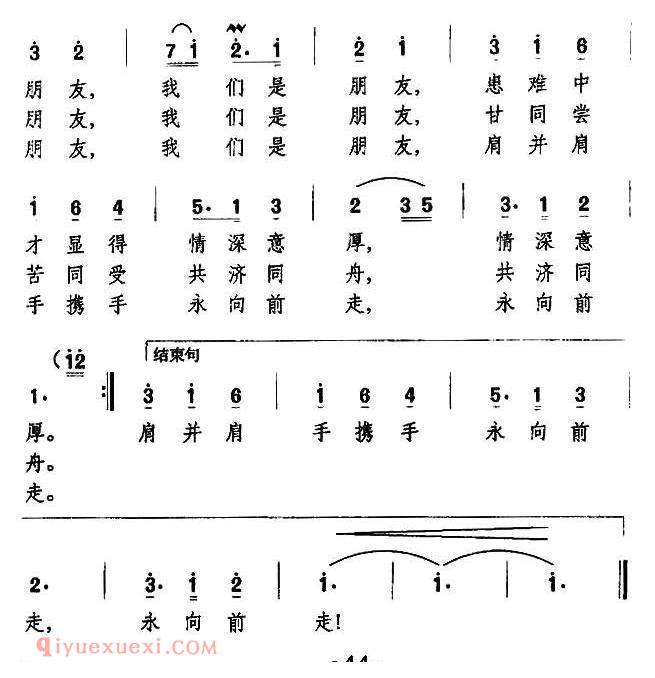 3 2 | 7 1 2. 1 | 2 1 | 3 1 6
朋 友, 我 们 是 朋 友, 患 难 中
朋 友, 我 们 是 朋 友, 甘 同 尝
朋 友, 我 们 是 朋 友, 肩 并 肩
1 6 4 | 5. 1 3 | 2 3 5 | 3. 1 2
才 显 得 情 深 意 厚, 情 深 意
苦 同 受 共 济 同 舟, 共 济 同
手 携 手 永 向 前 走, 永 向 前
(12 结束句
1. :| 3 1 6 | 1 6 4 | 5. 1 3
厚。 肩 并 肩 手 携 手 永 向 前
舟。
走。
2. | 3. 1 2 | 1. | 1. | 1. ||
走, 永 向 前 走!
qiyuexuexi.com